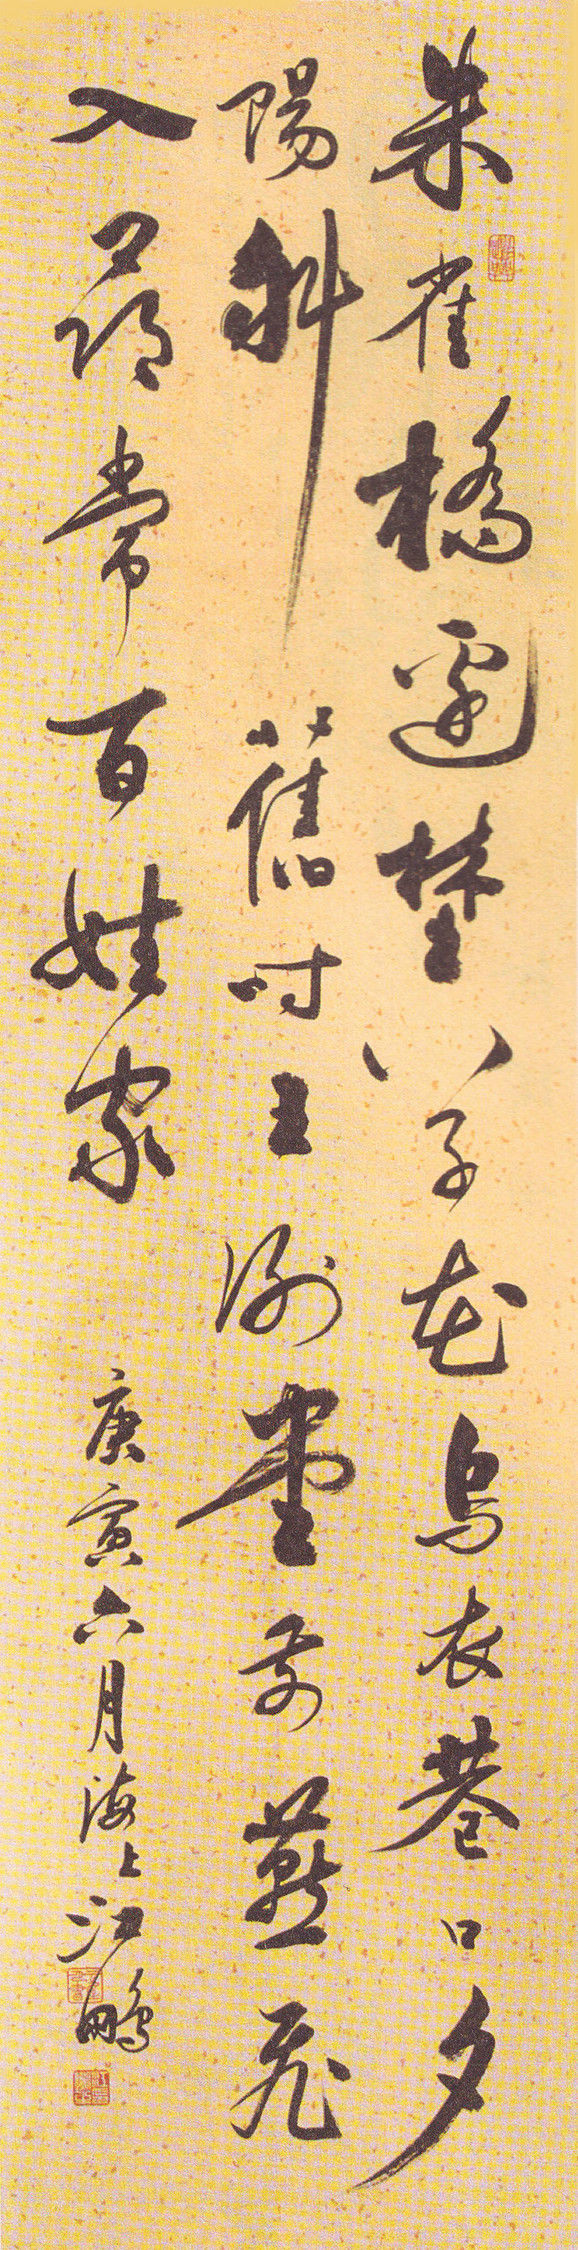 朱雀橋邊埜草花烏衣巷口夕
陽斜舊時王謝堂前燕飛
入尋常百姓家 庚寅六月海上江鵬